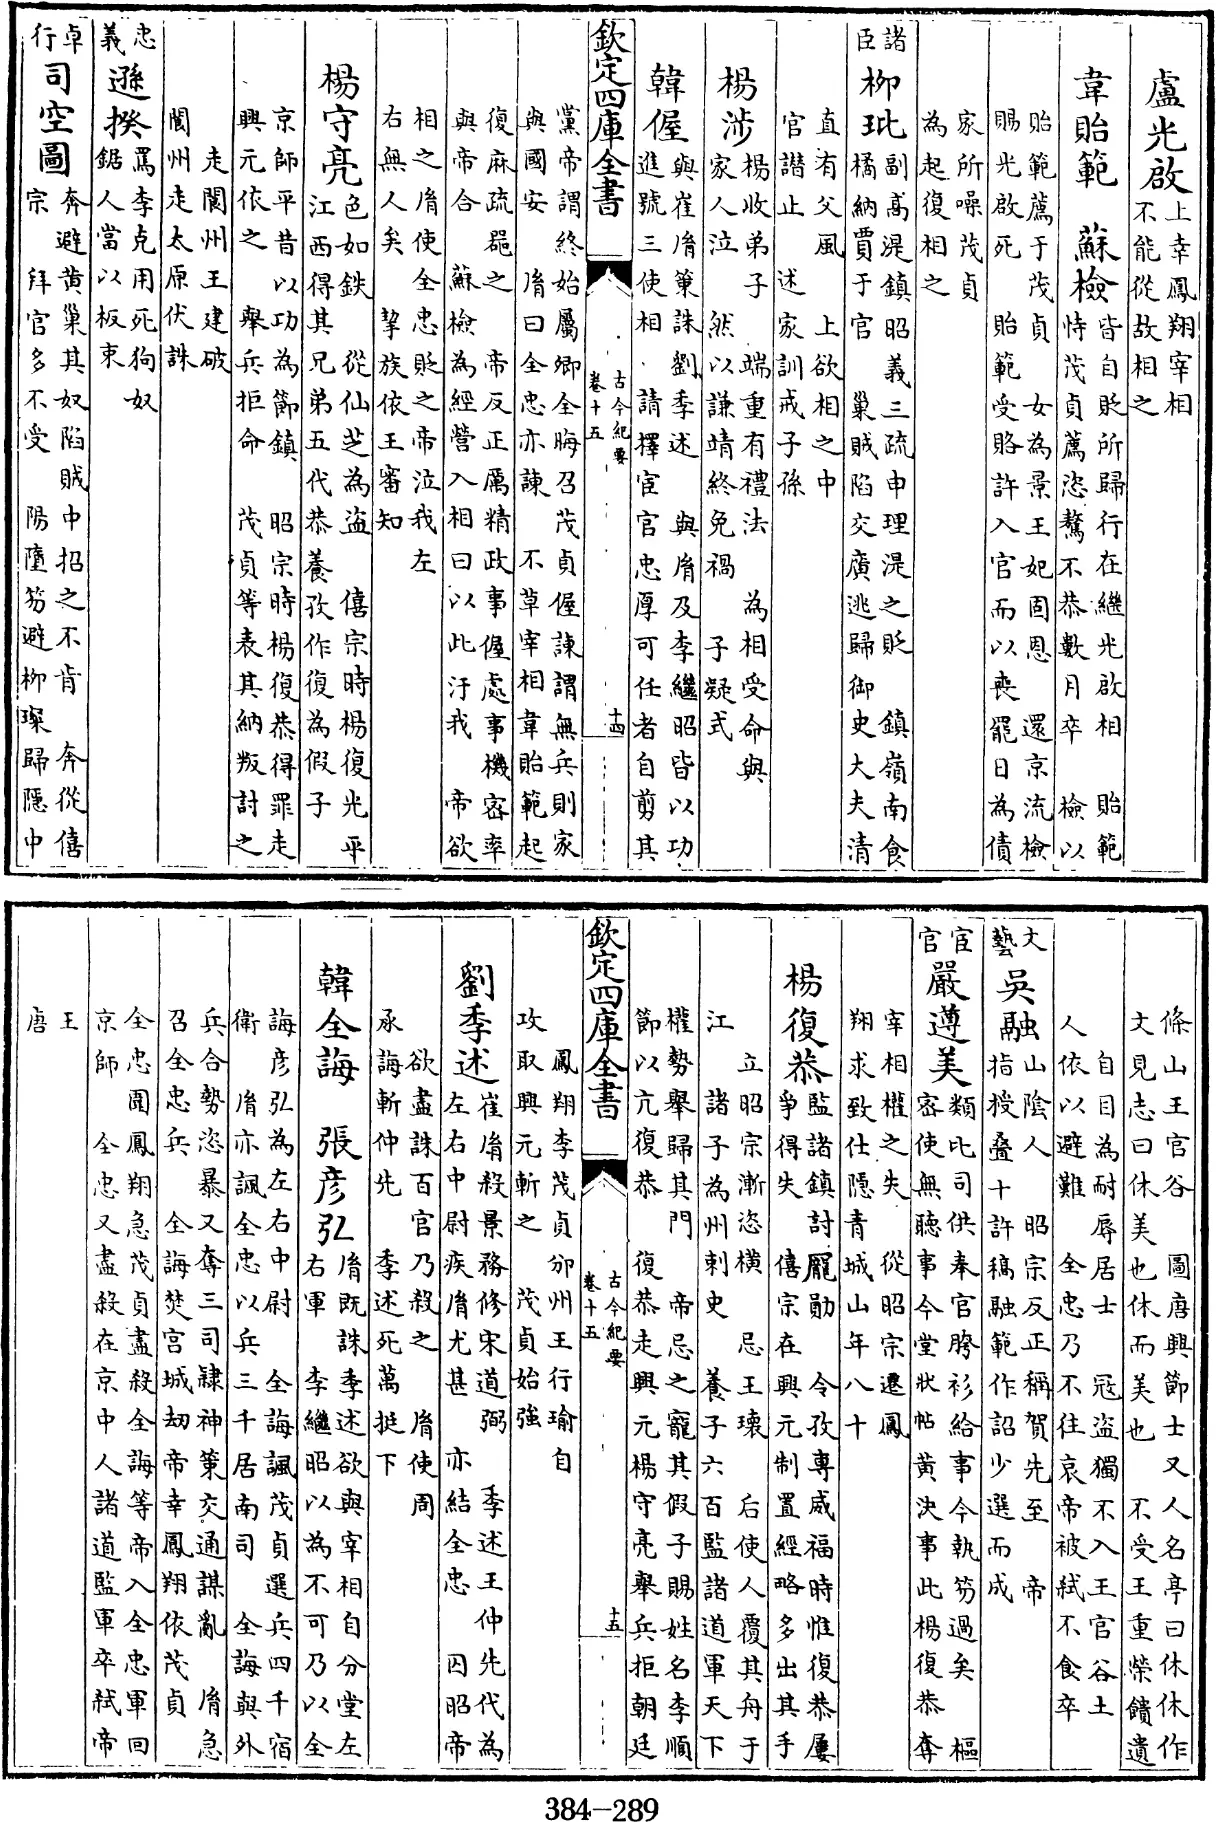 盧光啟 上幸鳳翔宰相
不能從故相之
韋貽範 蘇檢 皆自貶所歸行在繼光啟相 貽範
恃茂貞薦恣驁不恭數月卒 檢以
貽範薦于茂貞 女為景王妃固恩 還京流檢
賜光啟死 貽範受賂許入官而以喪罷日為債
家所噪茂貞
為起復相之
諸臣 柳玭 副高湜鎮昭義三疏申理湜之貶 鎮嶺南食
橘納賈于官 巢賊陷交廣逃歸御史大夫清
直有父風 上欲相之中
官譖止 述家訓戒子孫
楊涉 楊收弟子 端重有禮法 為相受命與
家人泣 然以謙靖終免禍 子凝式
韓偓 與崔胤策誅劉季述 與胤及李繼昭皆以功
進號三使相 請擇宦官忠厚可任者自剪其
欽定四庫全書 古今紀要 卷十五 十四
黨帝謂終始屬卿全晦召茂貞偓諫謂無兵則家
與國安 胤曰全忠亦諫 不草宰相韋貽範起
復麻疏罷之 帝反正厲精政事偓處事機密率
與帝合 蘇檢為經營入相曰以此汙我 帝欲
相之胤使全忠貶之帝泣我左
右無人矣 挈族依王審知
楊守亮 色如鉄 從仙芝為盜 僖宗時楊復光平
江西得其兄弟五代恭養孜作復為假子
京師平昔以功為節鎮 昭宗時楊復恭得罪走
興元依之 舉兵拒命 茂貞等表其納叛討之
走閬州王建破
閬州走太原伏誅
忠義 遜揆 罵李克用死狗奴
鋸人當以板束
卓行 司空圖 奔避黃巢其奴陷賊中招之不肯 奔從僖
宗 拜官多不受 陽墮笏避柳璨歸隱中
條山王官谷 圖唐興節士又人名亭曰休休作
文見志曰休美也休而美也 不受王重榮饋遺
自目為耐辱居士 冦盜獨不入王官谷土
人依以避難 全忠乃不往哀帝被弒不食卒
文藝 吳融 山陰人 昭宗反正稱賀先至 帝
指授疊十許稿融範作詔少選而成
宦官 嚴遵美 類比司供奉官胯衫給事今執笏過矣 樞
密使無聽事今堂狀帖黃決事此楊復恭奪
宰相權之失 從昭宗遷鳳
翔求致仕隱青城山年八十
楊復恭 監諸鎮討龎勛 令孜專威福時惟復恭屢
爭得失 僖宗在興元制置經略多出其手
立昭宗漸恣橫 忌王瓌 后使人覆其舟于
江 諸子為州刺史 養子六百監諸道軍天下
權勢舉歸其門 帝忌之寵其假子賜姓名李順
節以亢復恭 復恭走興元楊守亮舉兵拒朝廷
欽定四庫全書 古今紀要 卷十五 十五
鳳翔李茂貞邠州王行瑜自
攻取興元斬之 茂貞始強
劉季述 崔胤殺景務修宋道弼 季述王仲先代為
左右中尉疾胤尤甚 亦結全忠 囚昭帝
欲盡誅百官乃殺之 胤使周
承誨斬仲先 季述死萬挺下
韓全誨 張彦弘 胤既誅季述欲與宰相自分堂左
右軍 李繼昭以為不可乃以全
誨彦弘為左右中尉 全誨諷茂貞選兵四千宿
衛 胤亦諷全忠以兵三千居南司 全誨與外
兵合勢恣暴又奪三司隸神策交通謀亂 胤急
召全忠兵 全誨焚宫城刼帝幸鳳翔依茂貞
全忠圍鳳翔急茂貞盡殺全誨等帝入全忠軍回
京師 全忠又盡殺在京中人諸道監軍卒弒帝
王
唐
384-289